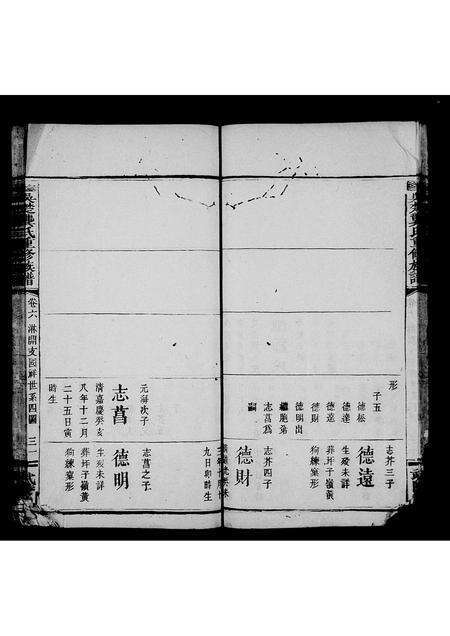 形
子五
德松
德達
德遠
德財
德明出
繼胞弟
志菖為
嗣
志芥三子
德遠
生歿未詳
葬坪子嶺黃
狗練窠形
志芥四子
德財
九日卯時生
元海次子
志菖
清嘉慶癸亥
八年十二月
二十五日寅
時生
志菖之子
德明
生歿未詳
葬坪子嶺黃
狗練窠形
氏重修族譜
卷六
三一